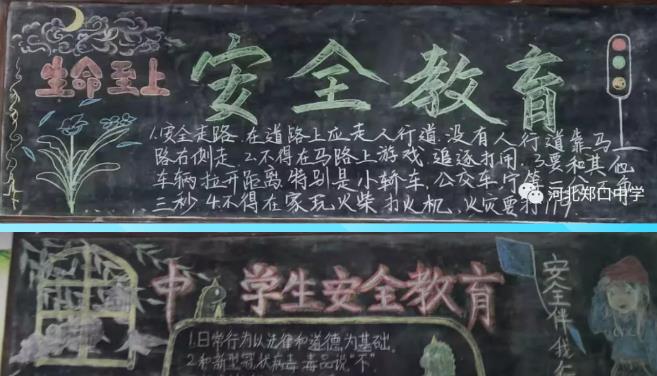 生命至上
安全教育
1.安全走路.在道路上应走人行道.没有人行道靠马
路右侧走.2.不得在马路上游戏.追逐打闹.3.要和其他
车辆拉开距离.特别是小轿车.公交车.宁等三分不
三秒.4.不得在家玩火柴.打火机.火灾要打119.
河北郑口中学
中 学生安全教育
1.日常行为以法律和道德为基础.
2.和新型冠状病毒.毒品说"不".
安全伴我